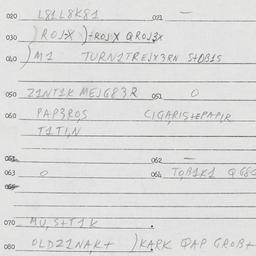 020 L81L8K81 021 —
030 )ROJX )+ROJX QROJ3X
040 )M1 TURN1TREJX3RN S+DB1S
050 Z1NT1K MEJG83R 051 0
060 PAP3ROS CIGARIS+EPAPIR
T1TI,N
061 062 —
063 0 064 TOB1K1
065
070 MU,S+T1K
080 OLDZ1NAK+ )KARK QAP GROB+